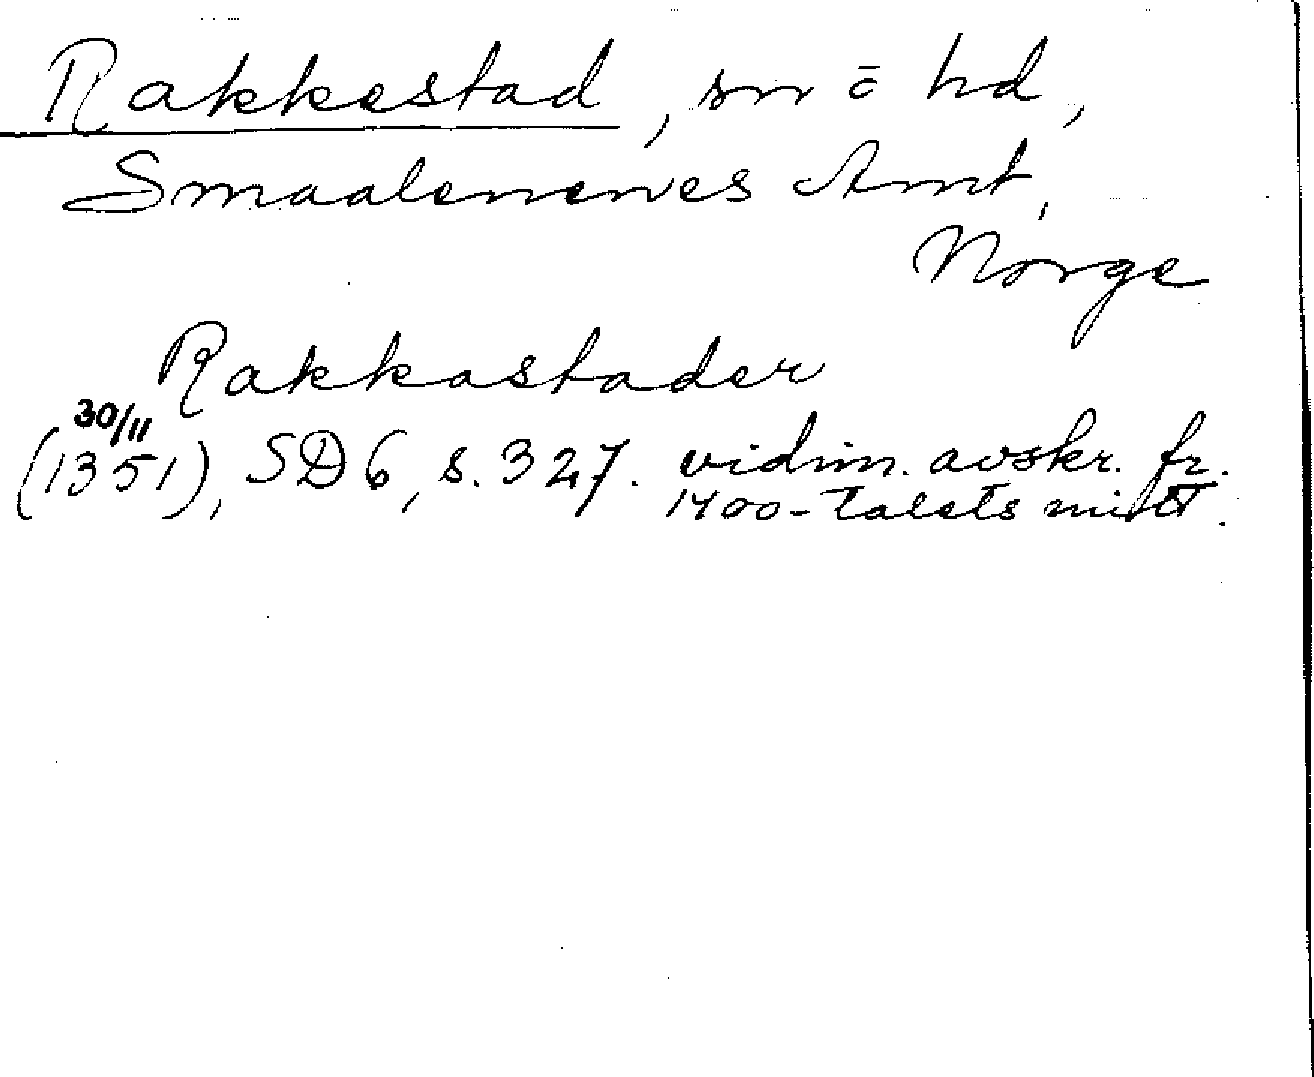 Rakkestad, sn ō hd,
Smaalenenes Amt,
Norge
Rakkastader
30/11
(1351), SD 6, s. 327. vidim. avskr. fr.
1400-talets mitt.